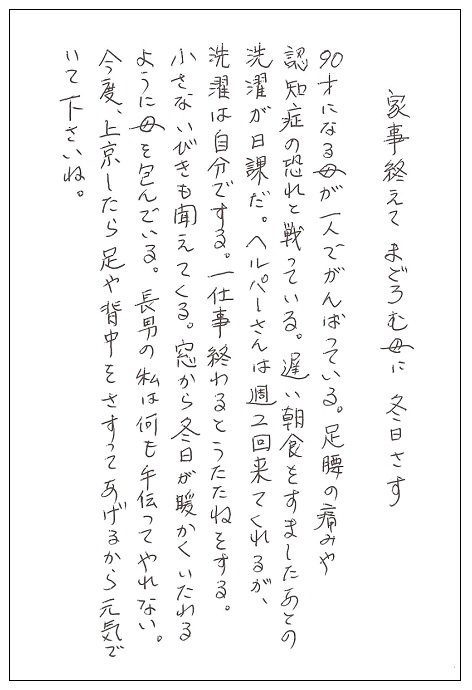 家事終えて まどろむ母に 冬日さす
90才になる母が一人でがんばっている。足腰の痛みや
認知症の恐れと戦っている。遅い朝食をすましたあとの
洗濯が日課だ。ヘルパーさんは週2回来てくれるが、
洗濯は自分でする。一仕事終わるとうたたねをする。
小さないびきも聞えてくる。窓から冬日が暖かくいたわる
ように母を包んでいる。長男の私は何も手伝ってやれない。
今度、上京したら足や背中をさすってあげるから元気で
いて下さいね。